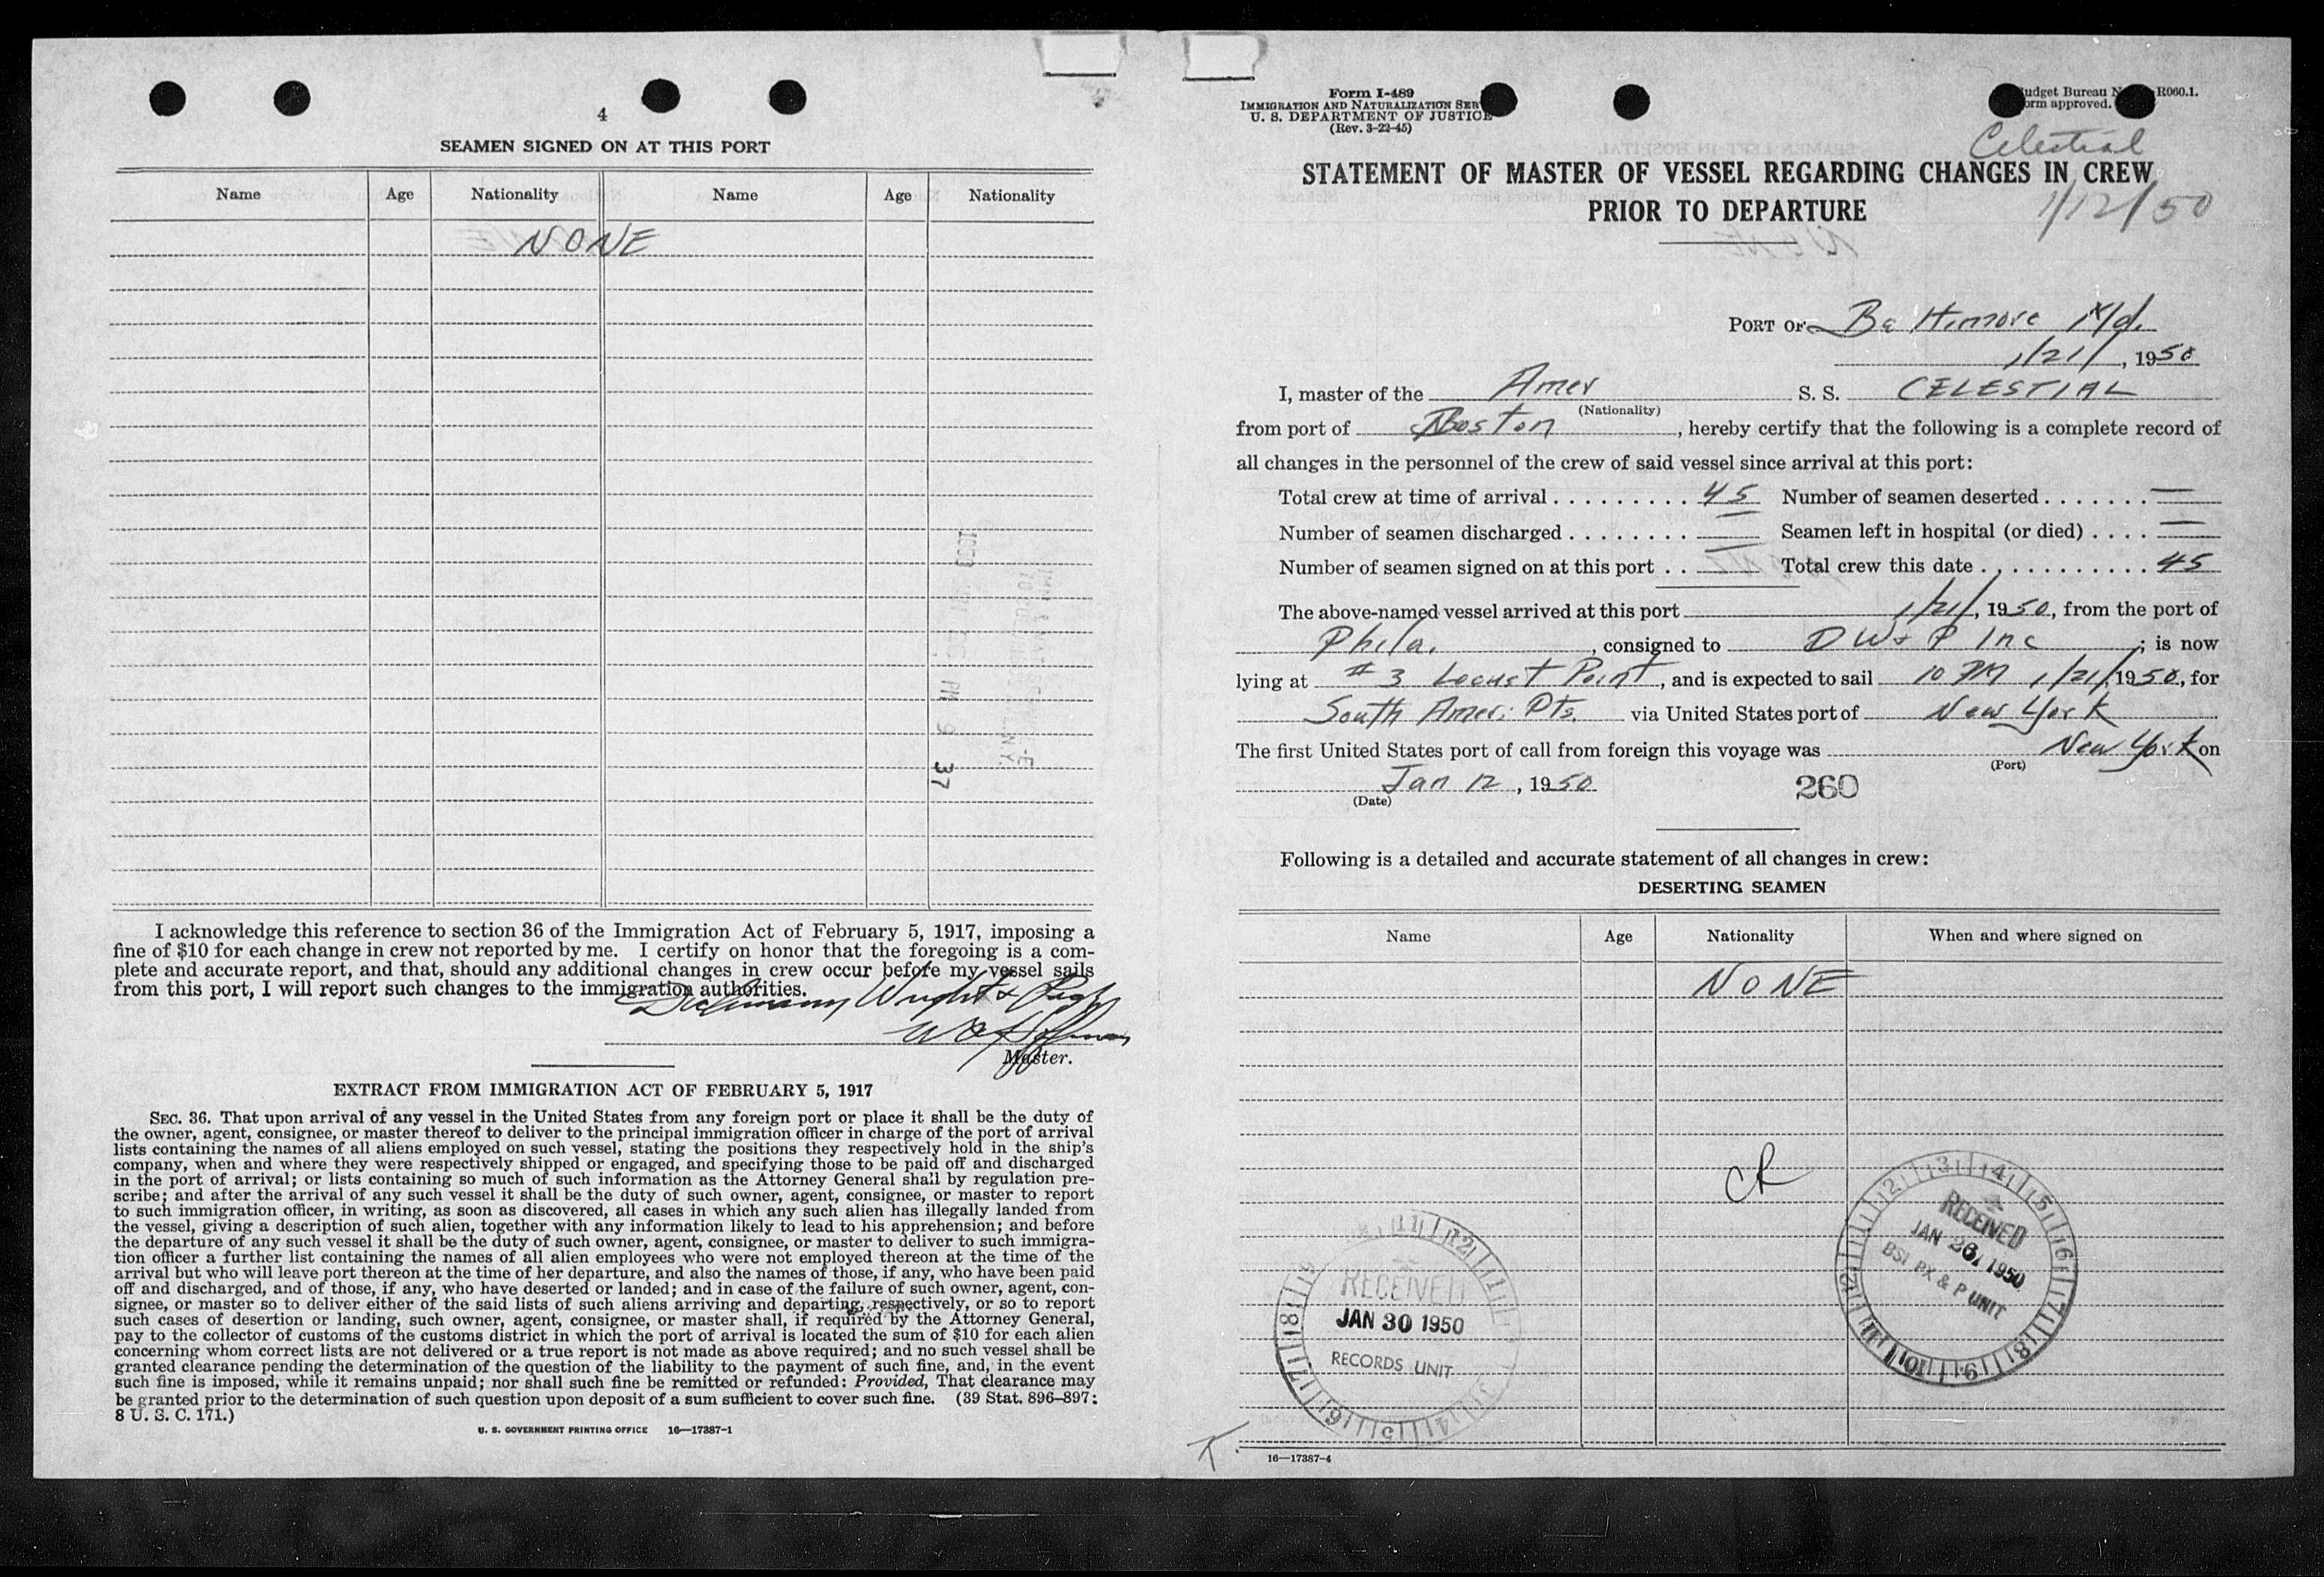 4
SEAMEN SIGNED ON AT THIS PORT
Name Age Nationality Name Age Nationality
NONE
37
I acknowledge this reference to section 36 of the Immigration Act of February 5, 1917, imposing a
fine of $10 for each change in crew not reported by me. I certify on honor that the foregoing is a com-
plete and accurate report, and that, should any additional changes in crew occur before my vessel sails
from this port, I will report such changes to the immigration authorities.
Wright &
Master.
EXTRACT FROM IMMIGRATION ACT OF FEBRUARY 5, 1917
SEC. 36. That upon arrival of any vessel in the United States from any foreign port or place it shall be the duty of
the owner, agent, consignee, or master thereof to deliver to the principal immigration officer in charge of the port of arrival
lists containing the names of all aliens employed on such vessel, stating the positions they respectively hold in the ship's
company, when and where they were respectively shipped or engaged, and specifying those to be paid off and discharged
in the port of arrival; or lists containing so much of such information as the Attorney General shall by regulation pre-
scribe; and after the arrival of any such vessel it shall be the duty of such owner, agent, consignee, or master to report
to such immigration officer, in writing, as soon as discovered, all cases in which any such alien has illegally landed from
the vessel, giving a description of such alien, together with any information likely to lead to his apprehension; and before
the departure of any such vessel it shall be the duty of such owner, agent, consignee, or master to deliver to such immigra-
tion officer a further list containing the names of all alien employees who were not employed thereon at the time of the
arrival but who will leave port thereon at the time of her departure, and also the names of those, if any, who have been paid
off and discharged, and of those, if any, who have deserted or landed; and in case of the failure of such owner, agent, con-
signee, or master so to deliver either of the said lists of such aliens arriving and departing, respectively, or so to report
such cases of desertion or landing, such owner, agent, consignee, or master shall, if required by the Attorney General,
pay to the collector of customs of the customs district in which the port of arrival is located the sum of $10 for each alien
concerning whom correct lists are not delivered or a true report is not made as above required; and no such vessel shall be
granted clearance pending the determination of the question of the liability to the payment of such fine, and, in the event
such fine is imposed, while it remains unpaid; nor shall such fine be remitted or refunded: Provided, That clearance may
be granted prior to the determination of such question upon deposit of a sum sufficient to cover such fine. (39 Stat. 896–897;
8 U. S. C. 171.)
U. S. GOVERNMENT PRINTING OFFICE 16—17387-1
Form I-489
IMMIGRATION AND NATURALIZATION SER
U. S. DEPARTMENT OF JUSTICE
(Rev. 3-22-45)
udget Bureau N R060.1.
orm approved.
Celestial
STATEMENT OF MASTER OF VESSEL REGARDING CHANGES IN CREW
PRIOR TO DEPARTURE
1/12/50
PORT OF Baltimore Md.
1/21/, 1950
I, master of the Amer S. S. CELESTIAL
(Nationality)
from port of Boston, hereby certify that the following is a complete record of
all changes in the personnel of the crew of said vessel since arrival at this port:
Total crew at time of arrival 45 Number of seamen deserted —
Number of seamen discharged — Seamen left in hospital (or died) —
Number of seamen signed on at this port — Total crew this date 45
The above-named vessel arrived at this port 1/21/, 1950, from the port of
Phila., consigned to D W & P Inc; is now
lying at # 3 Locust Point, and is expected to sail 10 PM 1/21/, 1950, for
South Amer. Pts. via United States port of New York
The first United States port of call from foreign this voyage was New York on
(Port)
Jan 12, 1950
(Date)
260
Following is a detailed and accurate statement of all changes in crew:
DESERTING SEAMEN
Name Age Nationality When and where signed on
NONE
CR
RECEIVED
JAN 26, 1950
BSI PX & P UNIT
RECEIVED
JAN 30 1950
RECORDS UNIT
16—17387-4